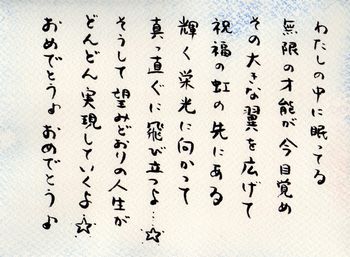 わたしの中に眠ってる
無限の才能が今目覚め
その大きな翼を広げて
祝福の虹の先にある
輝く栄光に向かって
真っ直ぐに飛び立つよ…☆
そうして望みどおりの人生が
どんどん実現していくよ☆
おめでとう♪おめでとう♪